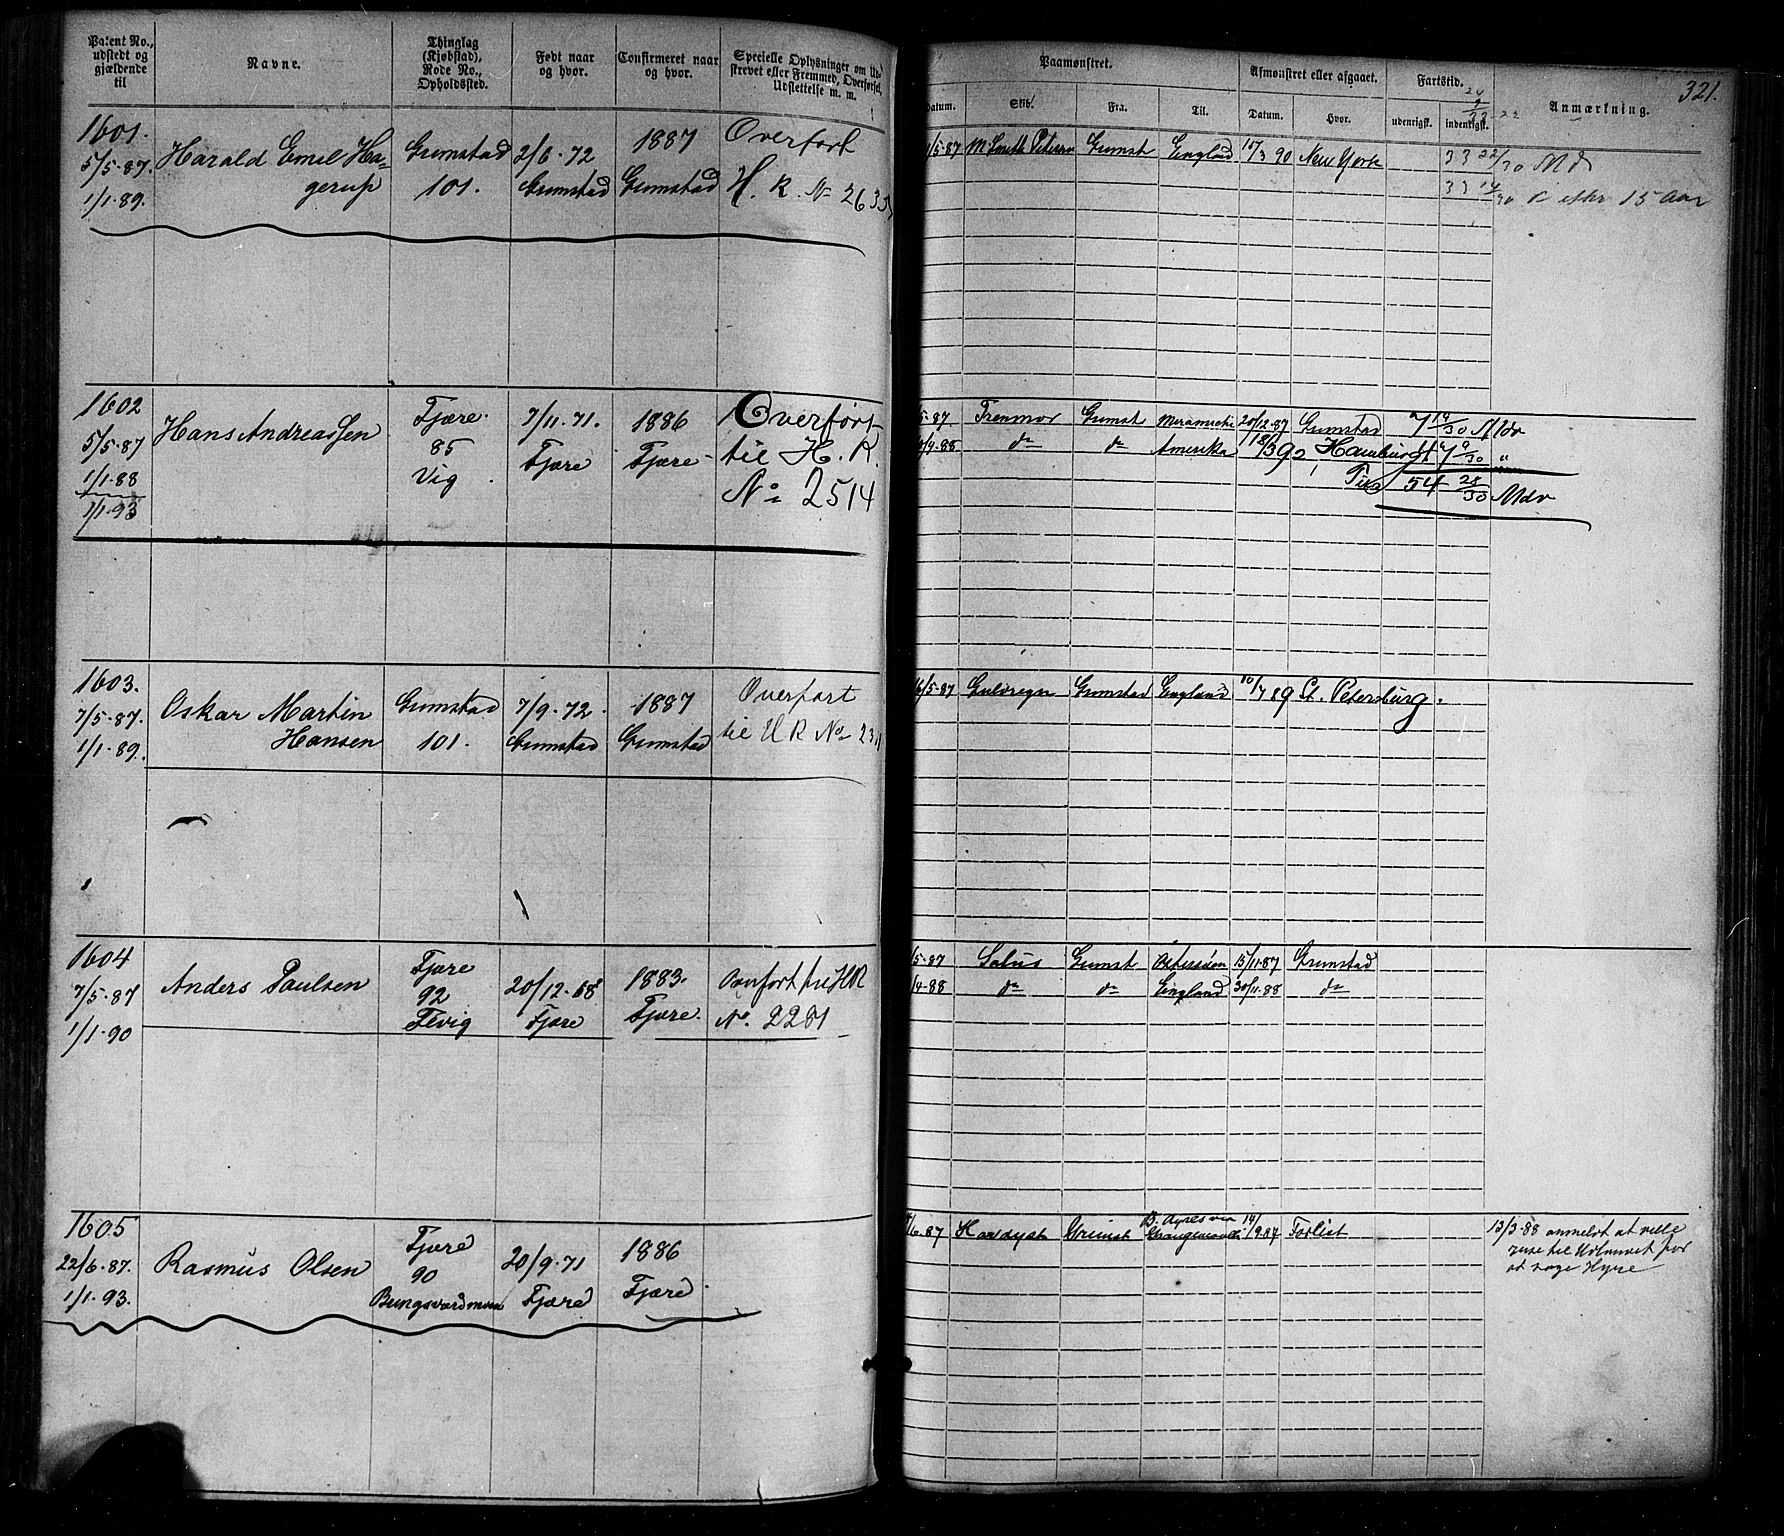 321.
Patent No., udstedt og gjældende til
Navne.
Thinglag (Kjøbstad), Rode No., Opholdssted.
Født naar og hvor.
Confirmeret naar og hvor.
Specielle Oplysninger om
Udslettelse m. m.
Paamønstret.
Afmønstret eller afgaaet.
Fartstid.
Anmærkning.
Datum.
Skib.
Fra.
Til.
Datum.
Hvor.
udenrigsk.
indenrigsk.
1601.
5/5-87.
1/1-89.
Harald Emil Hagerup
Grimstad
101.
2/6-72
Grimstad
1887
Grimstad
Overført
H. R. No 263
England
90 New York
33 22/30 Md
efter 15 Aar
1602
5/5-87
1/1-88
1/1-93
Hans Andreassen
Fjære
85
Vig
7/11-71.
Fjære
1886
Fjære
Overført
til H. R.
No 2514
5-87 Trenmor Grimst Miramichi 20/12-87 Grimstad 7 19/30 Mdr
4-88 do do Amerika 18/3 92 Hamburg 47 9/30 "
54 28/30 Mdr
1603.
7/5-87.
1/1-89.
Oskar Martin
Hansen
Grimstad
101.
7/9-72.
Grimstad
1887
Grimstad
Overført
til H R No 23
6/5-87 Guldregn Grimstad England 10/7 89 St. Petersburg.
1604
7/5-87
1/1-90
Anders Paulsen
Fjære
92
Fevig
20/12-68
Fjære
1883.
Fjære.
Overfort til H R
No. 2281
5-87 Salus Grimst Østersøen 15/11-87 Grimstad
4-88 do do England 30/11-88 do
1605
22/6-87.
1/1-93.
Rasmus Olsen
Fjære
90
20/9-71
Fjære
1886
Fjære
6-87 Grimst B. Ayres via Grangemouth 14/9-87 Forliset
13/3-88 anmeldt at ville
rejse til Udlandet for
at søge Hyre